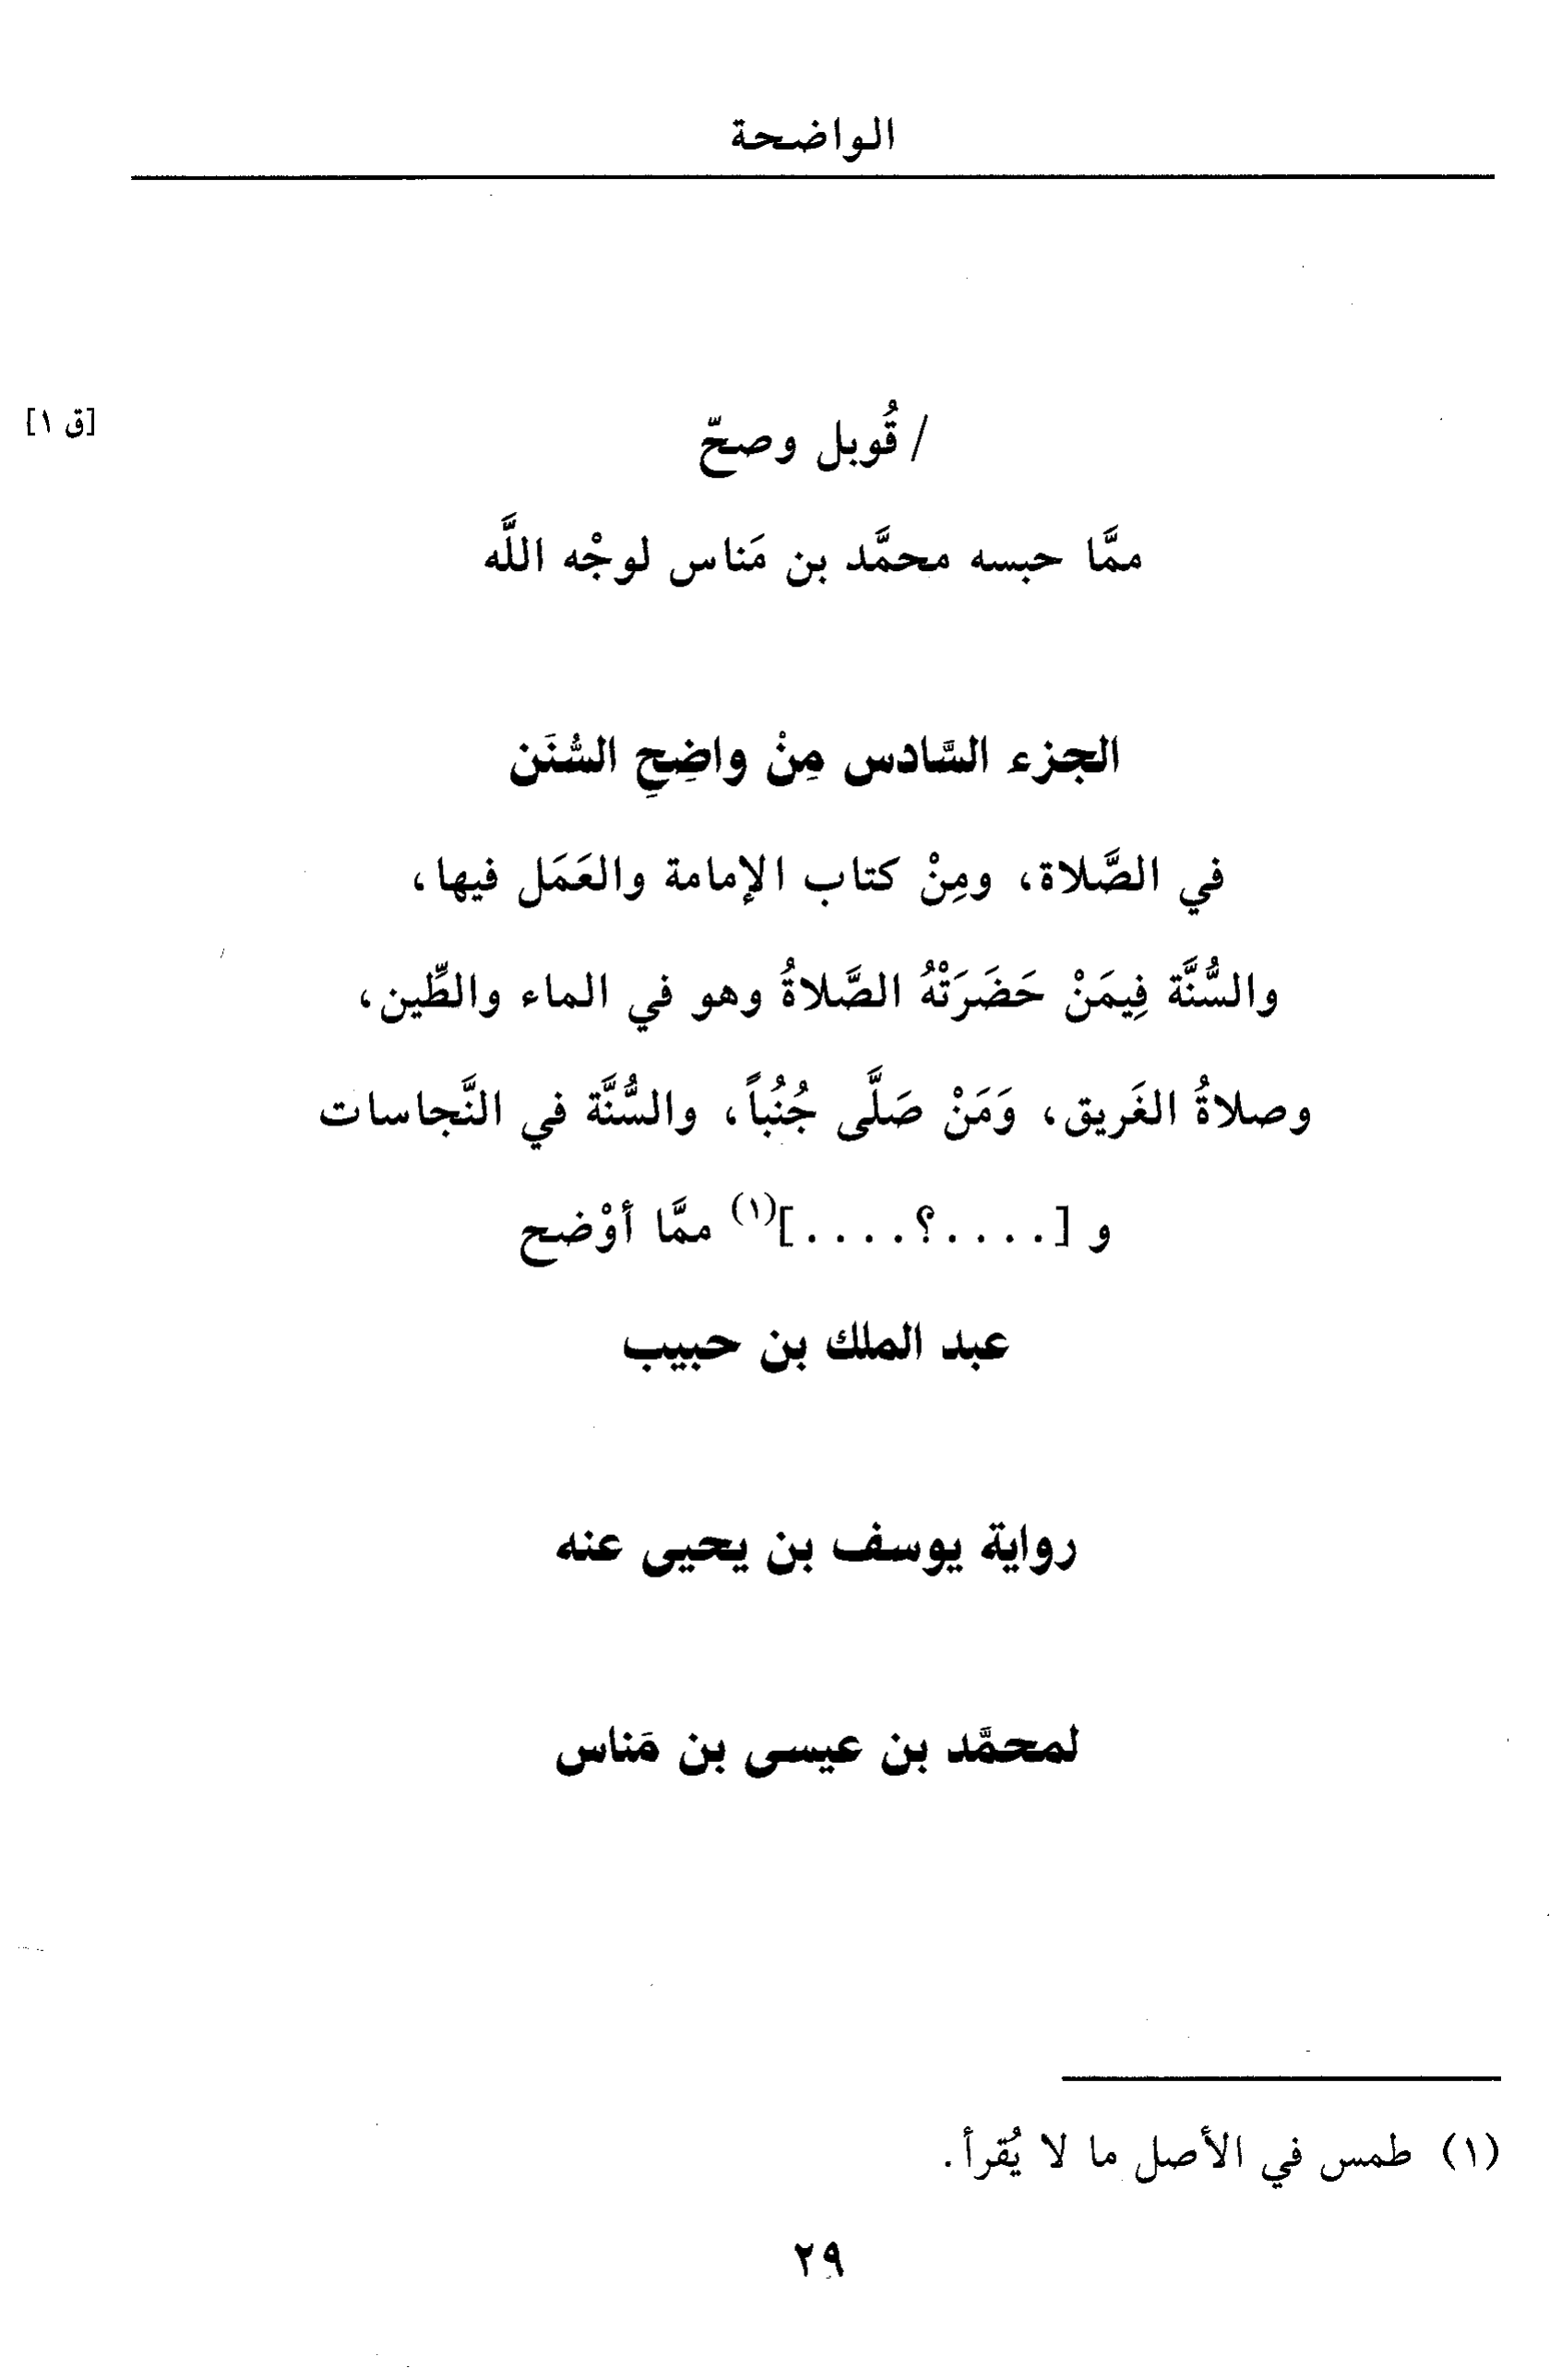 الواضحة
/ قُوبل وصحّ [ق ١]
ممَّا حبسه محمَّد بن مَناس لوجْه اللَّه
الجزء السَّادس مِنْ واضِحِ السُّنَن
في الصَّلاة، ومِنْ كتاب الإمامة والعَمَل فيها،
والسُّنَّة فِيمَنْ حَضَرَتْهُ الصَّلاةُ وهو في الماء والطِّين،
وصلاةُ الغَريق، وَمَنْ صَلَّى جُنُباً، والسُّنَّة في النَّجاسات
و [. . . . ؟ . . . .](١) ممَّا أوْضح
عبد الملك بن حبيب
رواية يوسف بن يحيى عنه
لمحمَّد بن عيسى بن مَناس
(١) طمس في الأصل ما لا يُقرأ.
٢٩